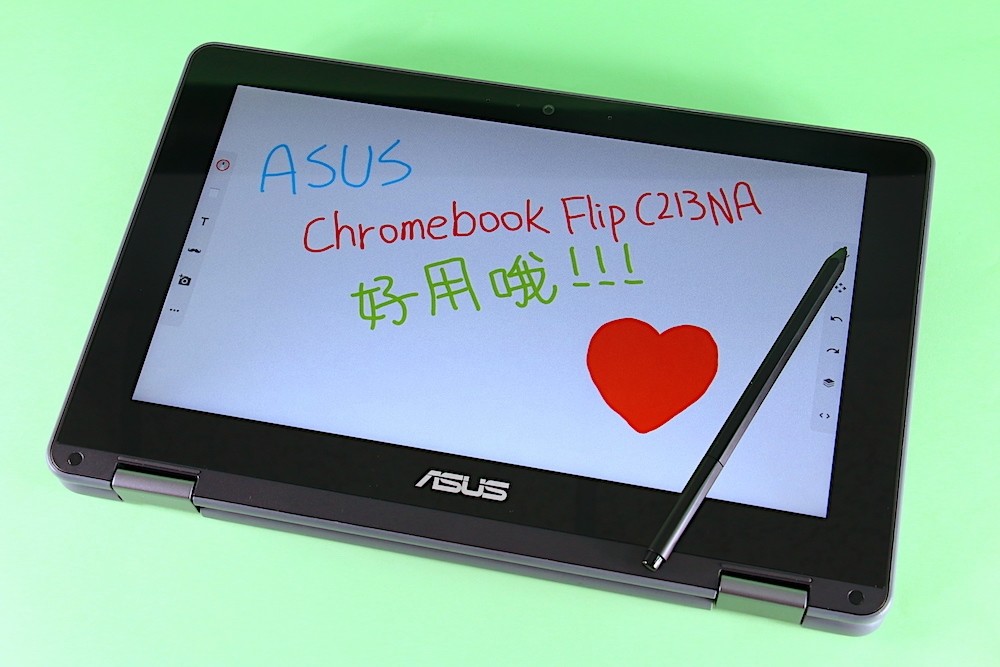 ASUS
Chromebook Flip C213NA
好用哦!!!
T
ASUS